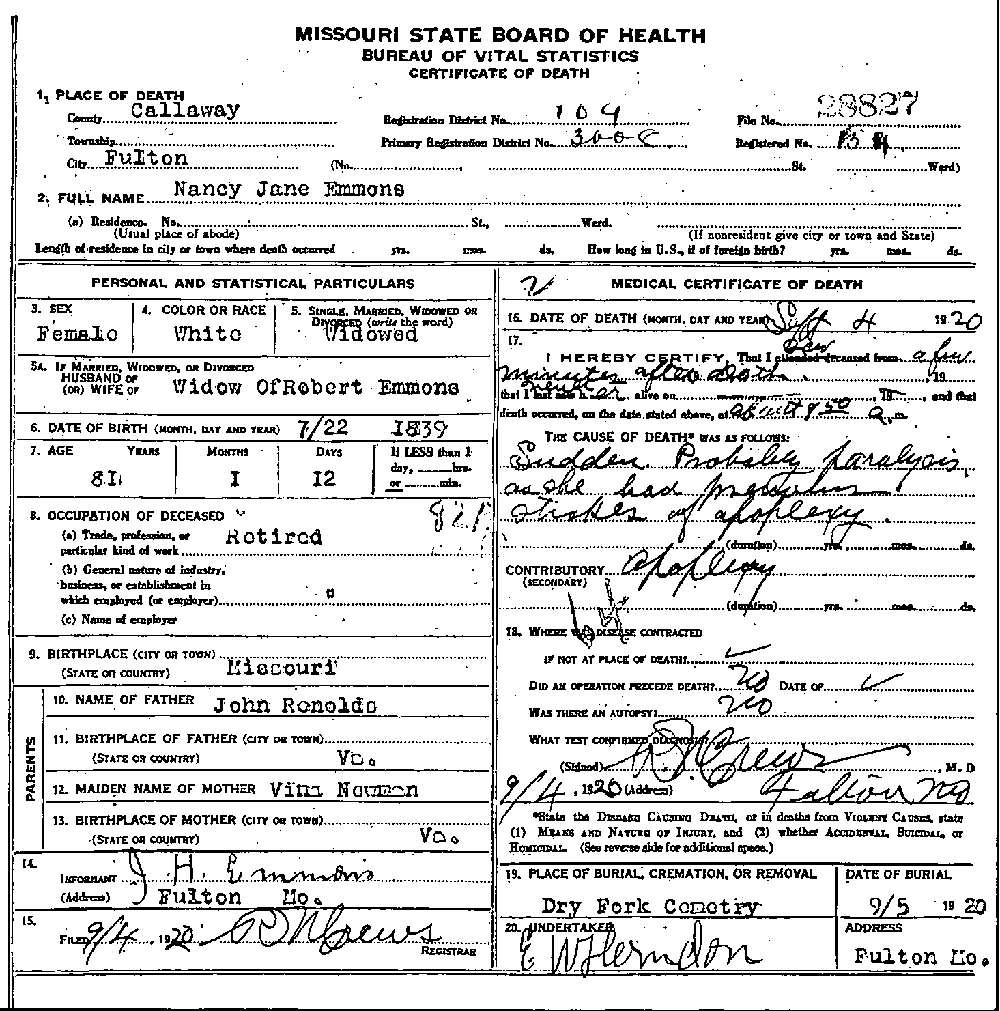 MISSOURI STATE BOARD OF HEALTH
BUREAU OF VITAL STATISTICS
CERTIFICATE OF DEATH
1. PLACE OF DEATH
County Callaway Registration District No. 104 File No. 28827
Township Primary Registration District No. Registered No.
City Fulton (No. St. Ward)
2. FULL NAME Nancy Jane Emmons
(a) Residence. No. St., Ward.
(Usual place of abode) (If nonresident give city or town and State)
Length of residence in city or town where death occurred yrs. mos. ds. How long in U.S., if of foreign birth? yrs. mos. ds.
PERSONAL AND STATISTICAL PARTICULARS
3. SEX
Female
4. COLOR OR RACE
White
5. SINGLE, MARRIED, WIDOWED OR
DIVORCED (write the word)
Widowed
5A. IF MARRIED, WIDOWED, OR DIVORCED
HUSBAND OF
(OR) WIFE OF Widow OfRobert Emmons
6. DATE OF BIRTH (MONTH, DAY AND YEAR) 7/22 1839
7. AGE YEARS MONTHS DAYS If LESS than 1
day, hrs.
81 1 12 or min.
8. OCCUPATION OF DECEASED
(a) Trade, profession, or
particular kind of work Retired
(b) General nature of industry,
business, or establishment in
which employed (or employer)
(c) Name of employer
9. BIRTHPLACE (CITY OR TOWN)
(STATE OR COUNTRY) Missouri
PARENTS
10. NAME OF FATHER John Renolds
11. BIRTHPLACE OF FATHER (CITY OR TOWN)
(STATE OR COUNTRY) Va.
12. MAIDEN NAME OF MOTHER Vina Newmen
13. BIRTHPLACE OF MOTHER (CITY OR TOWN)
(STATE OR COUNTRY) Va.
14.
INFORMANT J H Emmons
(Address) Fulton Mo.
15.
FILED 9/4, 1920 RN Crews
REGISTRAR
2 MEDICAL CERTIFICATE OF DEATH
16. DATE OF DEATH (MONTH, DAY AND YEAR) Sept 4 1920
17.
I HEREBY CERTIFY, That I attended deceased from a few
minutes after death, 19
that I last saw h er alive on , 19 , and that
death occurred, on the date stated above, at about 850 a.m.
THE CAUSE OF DEATH* WAS AS FOLLOWS:
Sudden. Probably paralysis
as she had previous
strokes of apoplexy.
(duration) yrs. mos. ds.
CONTRIBUTORY Apoplexy
(SECONDARY)
(duration) yrs. mos. ds.
18. WHERE WAS DISEASE CONTRACTED
IF NOT AT PLACE OF DEATH?
DID AN OPERATION PRECEDE DEATH? No DATE OF
WAS THERE AN AUTOPSY? No
WHAT TEST CONFIRMED DIAGNOSIS?
(Signed) RN Crews, M.D
9/4, 1920 (Address) Fulton Mo
*State the DISEASE CAUSING DEATH, or in deaths from VIOLENT CAUSES, state
(1) MEANS AND NATURE OF INJURY, and (2) whether ACCIDENTAL, SUICIDAL, or
HOMICIDAL. (See reverse side for additional space.)
19. PLACE OF BURIAL, CREMATION, OR REMOVAL
Dry Fork Cemetry
DATE OF BURIAL
9/5 1920
20. UNDERTAKER
E W Herndon
ADDRESS
Fulton Mo.